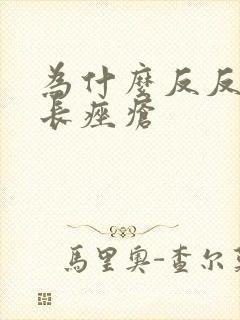 為什麼反反
長痤瘡
馬里奧-查尔